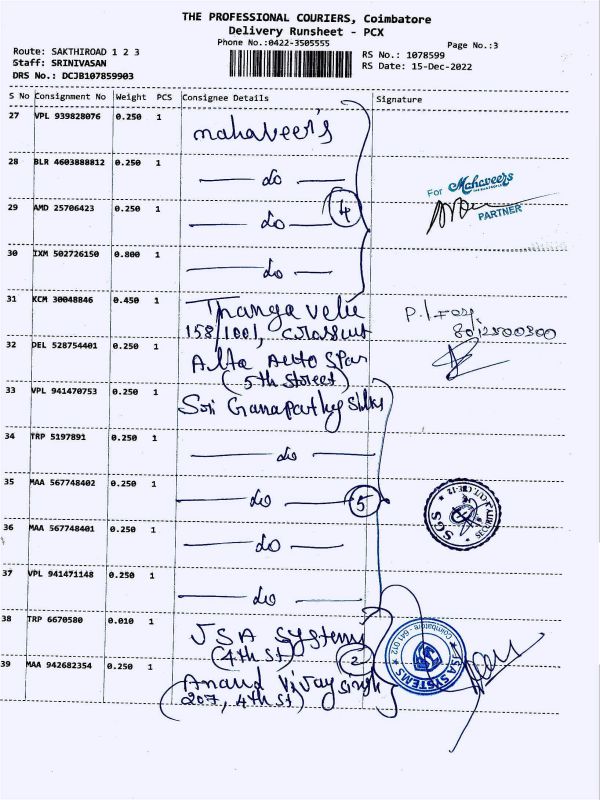 THE PROFESSIONAL COURIERS, Coimbatore
Delivery Runsheet - PCX
Phone No.:0422-3505555
Page No.:3
Route: SAKTHIROAD 1 2 3
RS No.: 1078599
Staff: SRINIVASAN
RS Date: 15-Dec-2022
DRS No.: DCJB107859903
S No Consignment No Weight PCS Consignee Details Signature
27 VPL 939828076 0.250 1 Mahaveer's
28 BLR 4603888812 0.250 1 do
For Mahaveers
29 AMD 25706423 0.250 1 do 4
PARTNER
30 IXM 502726150 0.800 1 do
31 KCM 30048846 0.450 1 Thangavelu
158/1001, crosscut
32 DEL 528754401 0.250 1 Alta Auto Spar
(5th Street)
33 VPL 941470753 0.250 1 Sri Ganapathy Silks
34 TRP 5197891 0.250 1 do
35 MAA 567748402 0.250 1 do 5
SGS SECURITY
36 MAA 567748401 0.250 1 do
37 VPL 941471148 0.250 1 do
38 TRP 6670580 0.010 1 JSA Systems
(4th St) 2
JSA SYSTEMS Coimbatore - 641 012
39 MAA 942682354 0.250 1 Anand Vijay Singh
(207, 4th St)